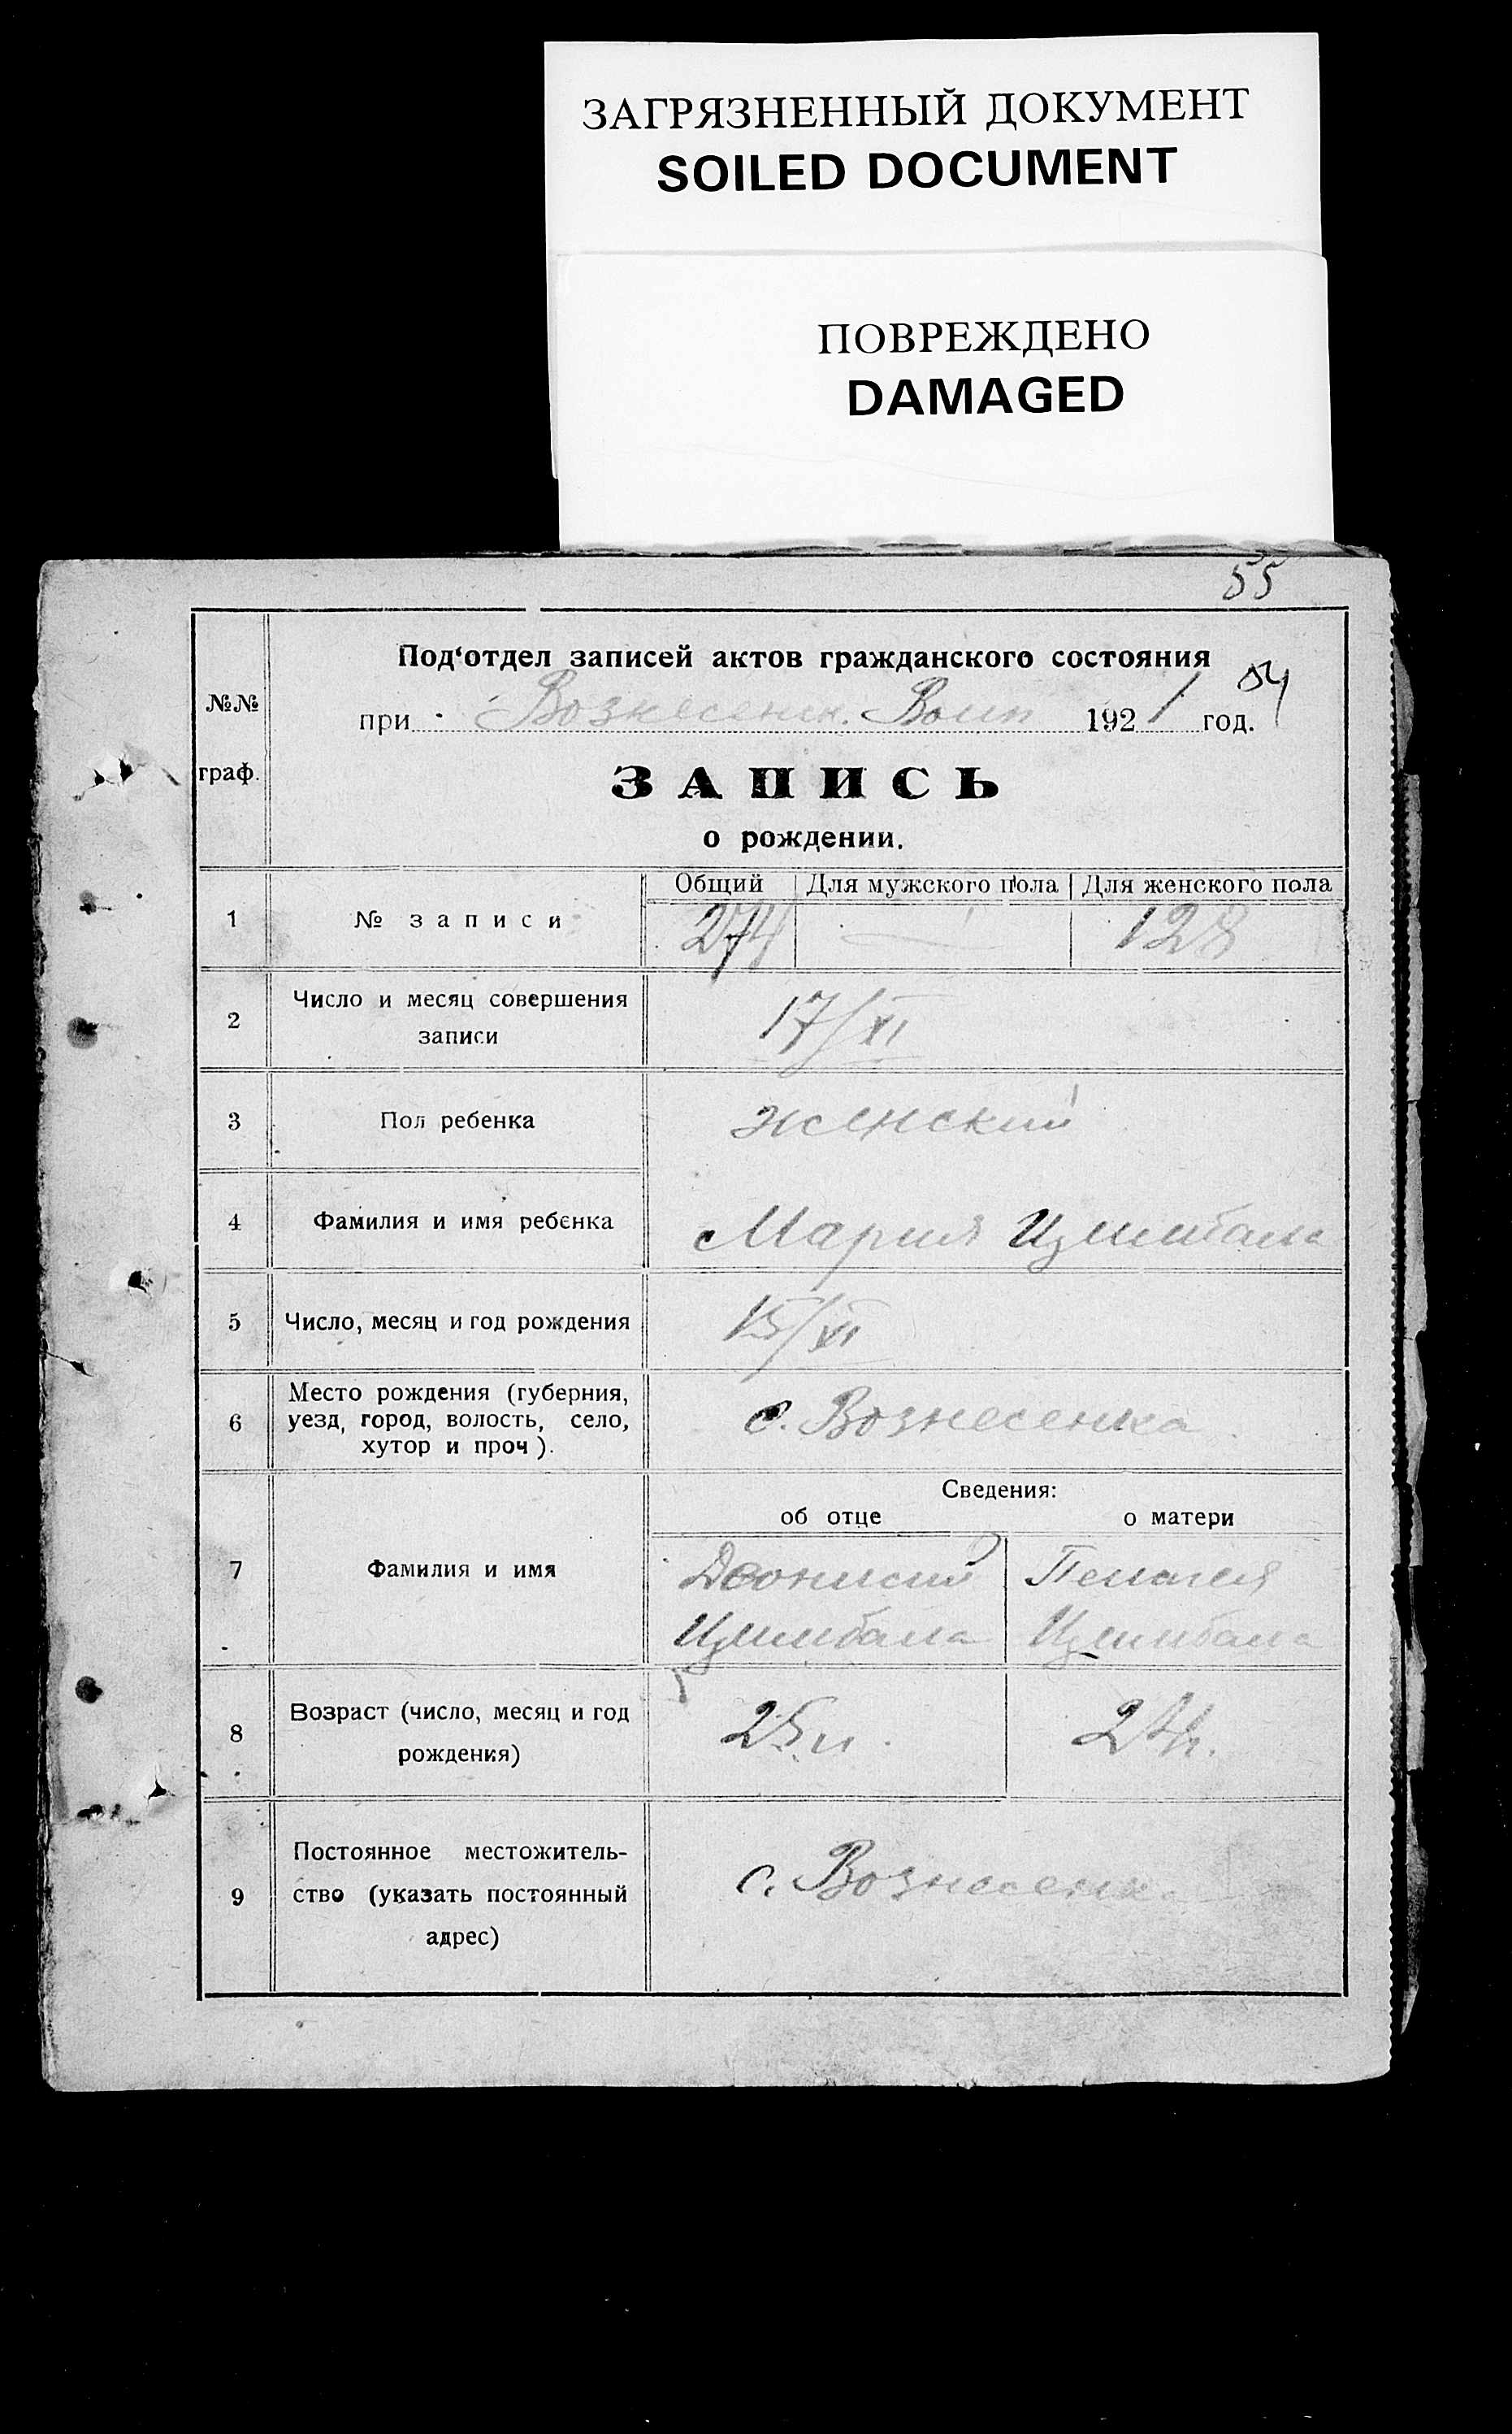 ЗАГРЯЗНЕННЫЙ ДОКУМЕНТ
SOILED DOCUMENT
ПОВРЕЖДЕНО
DAMAGED
55
№№ граф.
Под‘отдел записей актов гражданского состояния
54
при Вознесенск. 1921 год.
ЗАПИСЬ
о рождении.
Общий Для мужского пола Для женского пола
1 № записи 274 — 128
2 Число и месяц совершения
записи
17/XI
3 Пол ребенка женский
4 Фамилия и имя ребенка Мария Цимбала
5 Число, месяц и год рождения 15/XI
6 Место рождения (губерния,
уезд, город, волость, село,
хутор и проч).
с. Вознесенка
Сведения:
об отце о матери
7 Фамилия и имя
Деонисий Пелагея
Цимбала Цимбала
8 Возраст (число, месяц и год
рождения)
25 л. 24 л.
9 Постоянное местожитель-
ство (указать постоянный
адрес)
с. Вознесенк.